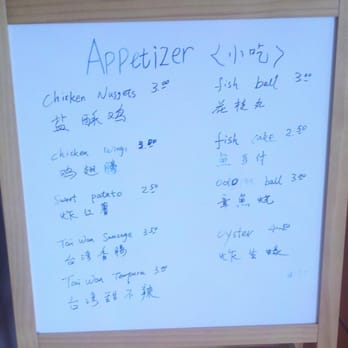 Appetizer <小吃>
Chicken Nuggets 3.00
盐酥鸡
Chicken Wings 3.00
鸡翅膀
Sweet potato 2.50
炸红薯
Tai Wan Sausage 3.50
台湾香腸
Tai Wan Tempura 3.00
台湾甜不辣
fish ball 3.00
花枝丸
fish cake 2.50
魚
ball 3.00
章魚烧
oyster
炸生蚝